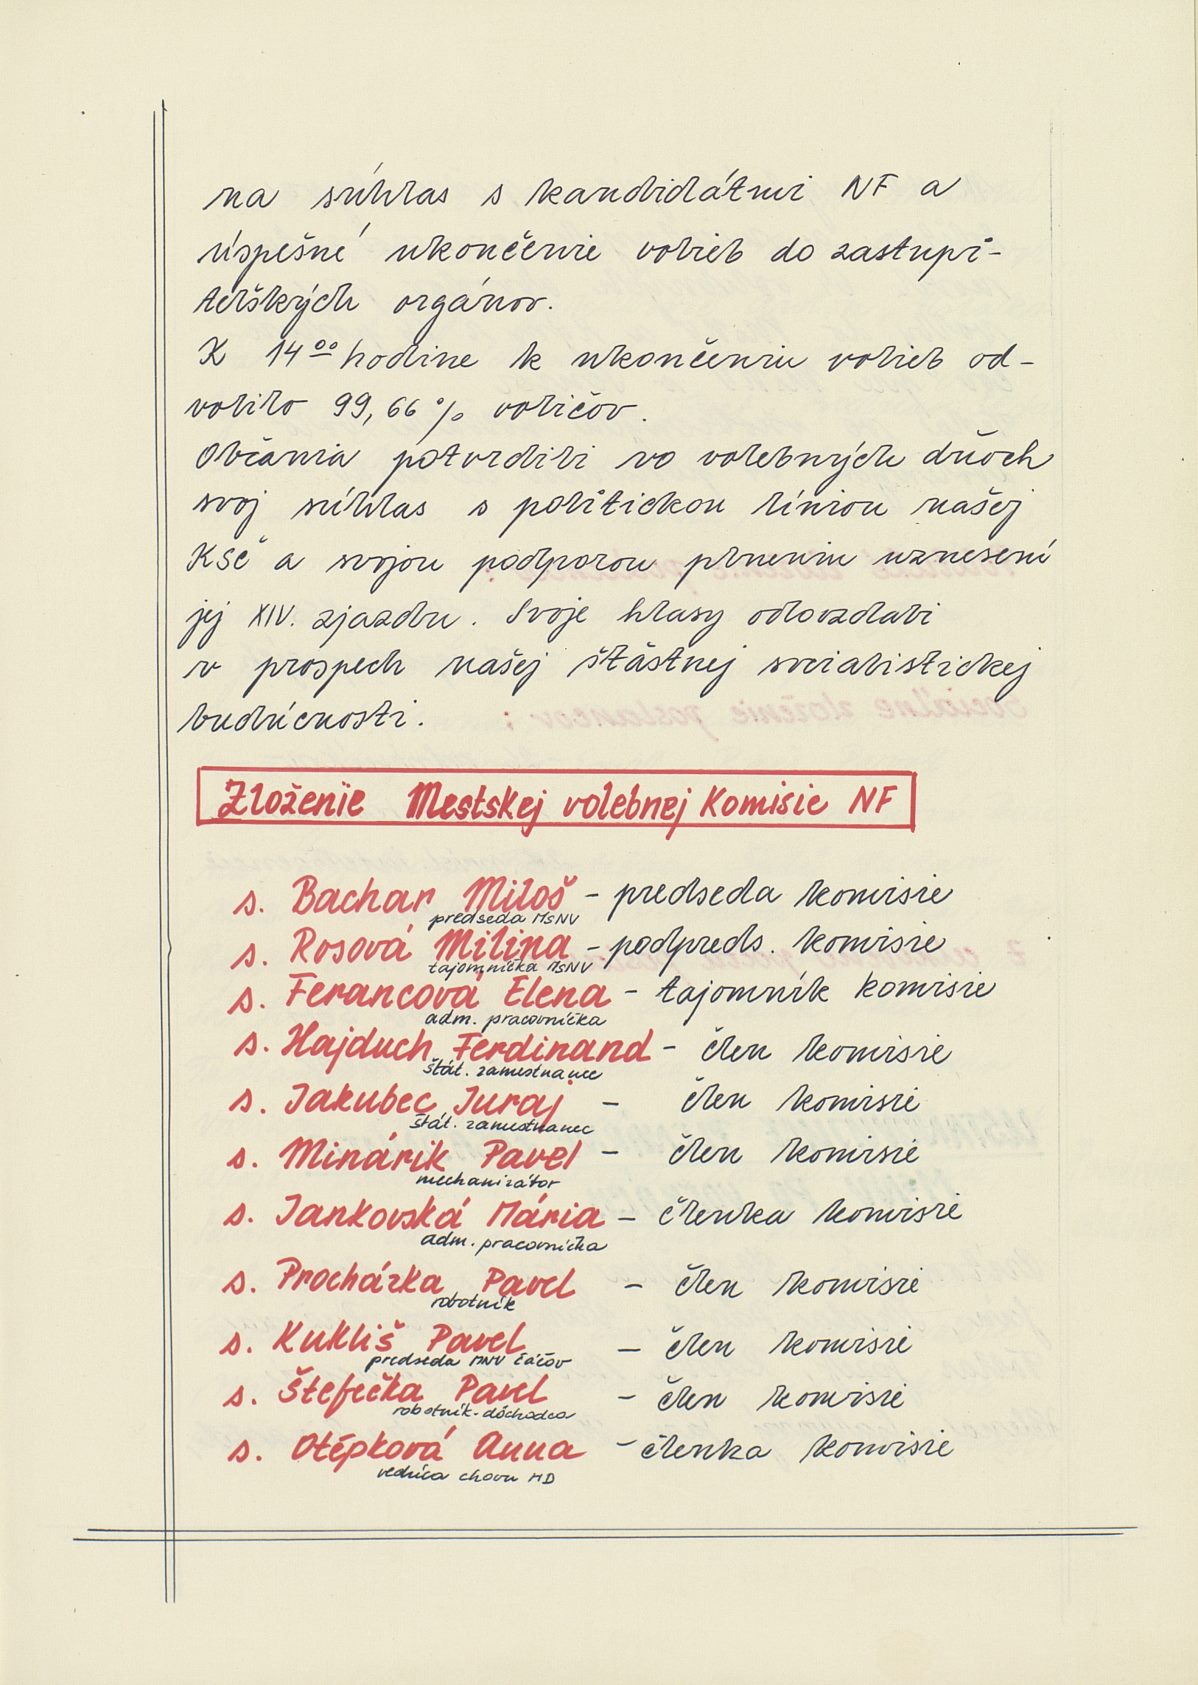 na súhlas s kandidátmi NF a
úspešné ukončenie volieb do zastupi-
teľských orgánov.
K 14⁰⁰ hodine k ukončeniu volieb od-
volilo 99,66 % voličov.
Občania potvrdili vo volebných dňoch
svoj súhlas s politickou líniou našej
KSČ a svojou podporou plneniu uznesení
jej XIV. zjazdu. Svoje hlasy odovzdali
v prospech našej šťastnej socialistickej
budúcnosti.
Zloženie Mestskej volebnej Komisie NF
s. Bachar Miloš - predseda komisie
predseda MsNV
s. Rosová Milina - podpreds. komisie
tajomníčka MsNV
s. Ferancová Elena - tajomník komisie
adm. pracovníčka
s. Hajduch Ferdinand - člen komisie
štát. zamestnanec
s. Jakubec Juraj - člen komisie
štát. zamestnanec
s. Minárik Pavel - člen komisie
mechanizátor
s. Jankovská Mária - členka komisie
adm. pracovníčka
s. Procházka Pavel - člen komisie
robotník
s. Kukliš Pavel - člen komisie
predseda MNV Čáčov
s. Štefečka Pavel - člen komisie
robotník-dôchodca
s. Otépková Anna - členka komisie
vedúca chovu HD